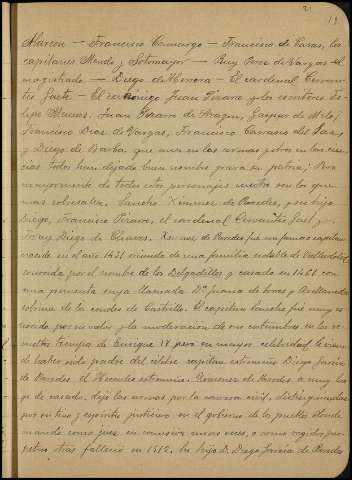 21
19
Alarcon — Francisco Camargo — Francisco de Casas, los
capitanes Mendo y Sotomayor — Ruy Perez de Vargas el
magistrado — Diego de Herrera — El cardenal Cervan-
tes Gaete — El canónigo Juan Pizarro y los escritores Fe-
lipe Juan Pizarro de Aragon, Gaspar de Melo,
Francisco Diaz de Vargas, Francisco Carrasco del Saz,
y Diego de Barba que unos en las armas y otros en las cien-
cias todos han dejado buen nombre para su patria; Pero
mayormente de todos estos personajes cuatro son los que
mas sobresalen. Sancho Ximenez de Paredes, y su hijo
Diego, Francisco Pizarro, el cardenal Cervantes Gaete y
Fray Diego de Chaves. Ximenez de Paredes fué un famoso capitan
nacido en el año 1431 oriundo de una familia notable de Valladolid
conocida por el nombre de los Delgadillos y casado en 1461 con
una parienta suya llamada Dª Juana de Torres y Avellaneda
sobrina de los condes de Castrillo. El capitan Sancho fué muy co-
nocido por su valor y la moderacion de sus costumbres en los re-
vueltos tiempos de Enrique IV pero su mayor celebridad le viene
de haber sido padre del célebre capitan extremeño Diego Garcia
de Paredes el Hercules extremeño. Ximenez de Paredes a muy lue-
go de casado, dejó las armas por la carrera civil, distinguiendose
por su tino y espíritu justiciero en el gobierno de los pueblos donde
mandó como juez en comision unas veces, o como regidor per-
petuo otras falleció en 1512. Su hijo D. Diego Garcia de Paredes